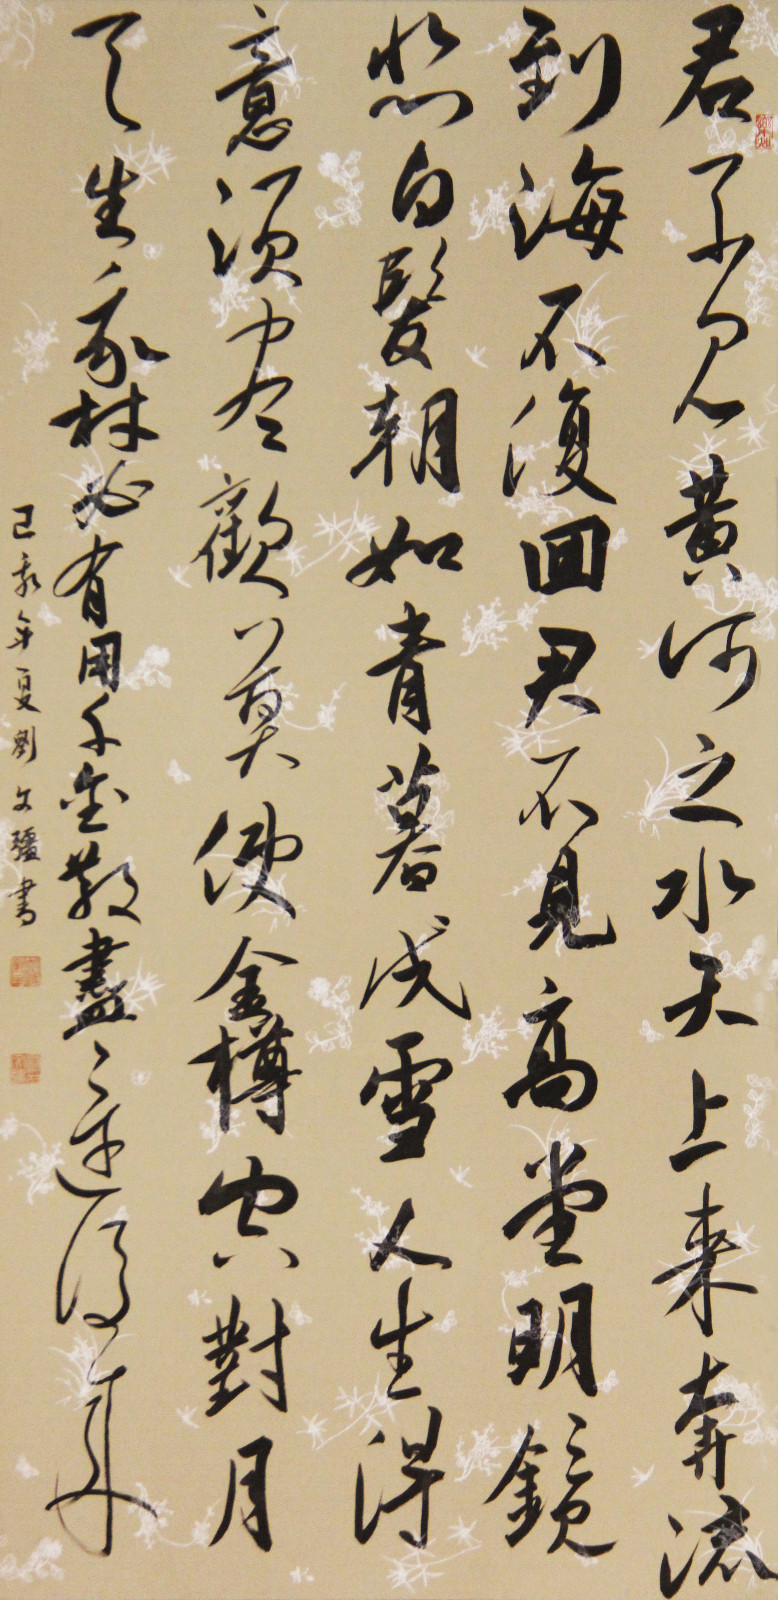 君不見黃河之水天上來奔流
到海不復回君不見高堂明鏡
悲白髮朝如青暮成雪人生得
意須尽歡莫使金樽空對月
天生我材必有用千金散盡還復來
己亥年夏劉文疆書